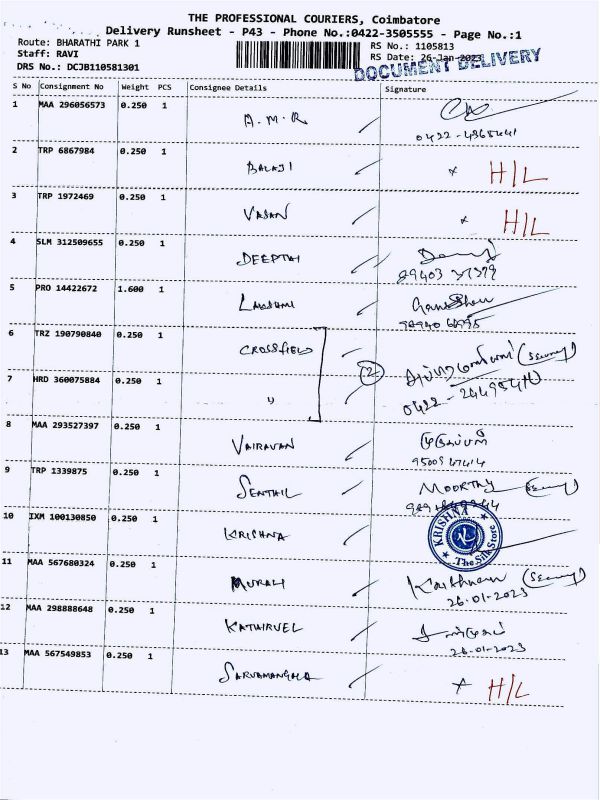 THE PROFESSIONAL COURIERS, Coimbatore
Delivery Runsheet - P43 - Phone No.:0422-3505555 - Page No.:1
Route: BHARATHI PARK 1
RS No.: 1105813
Staff: RAVI
RS Date: 26-Jan-2023
DRS No.: DCJB110581301
DOCUMENT DELIVERY
S No Consignment No Weight PCS Consignee Details Signature
1 MAA 296056573 0.250 1 A.M.R.
2 TRP 6867984 0.250 1 BALAJI x H/L
3 TRP 1972469 0.250 1 VASAN x H/L
4 SLM 312509655 0.250 1 DEEPTHI
5 PRO 14422672 1.600 1 LAKSHMI
6 TRZ 190790840 0.250 1 CROSSFIELD
2
7 HRD 360075884 0.250 1 "
8 MAA 293527397 0.250 1 VAIRAVAN
9 TRP 1339875 0.250 1 SENTHIL MOORTHY
10 IXM 100130850 0.250 1 KRISHNA
KRISHNA
The Silk Store
11 MAA 567680324 0.250 1 MURALI
26-01-2023
12 MAA 298888648 0.250 1 KATHIRVEL
26-01-2023
13 MAA 567549853 0.250 1 SARVAMANGALA x H/L